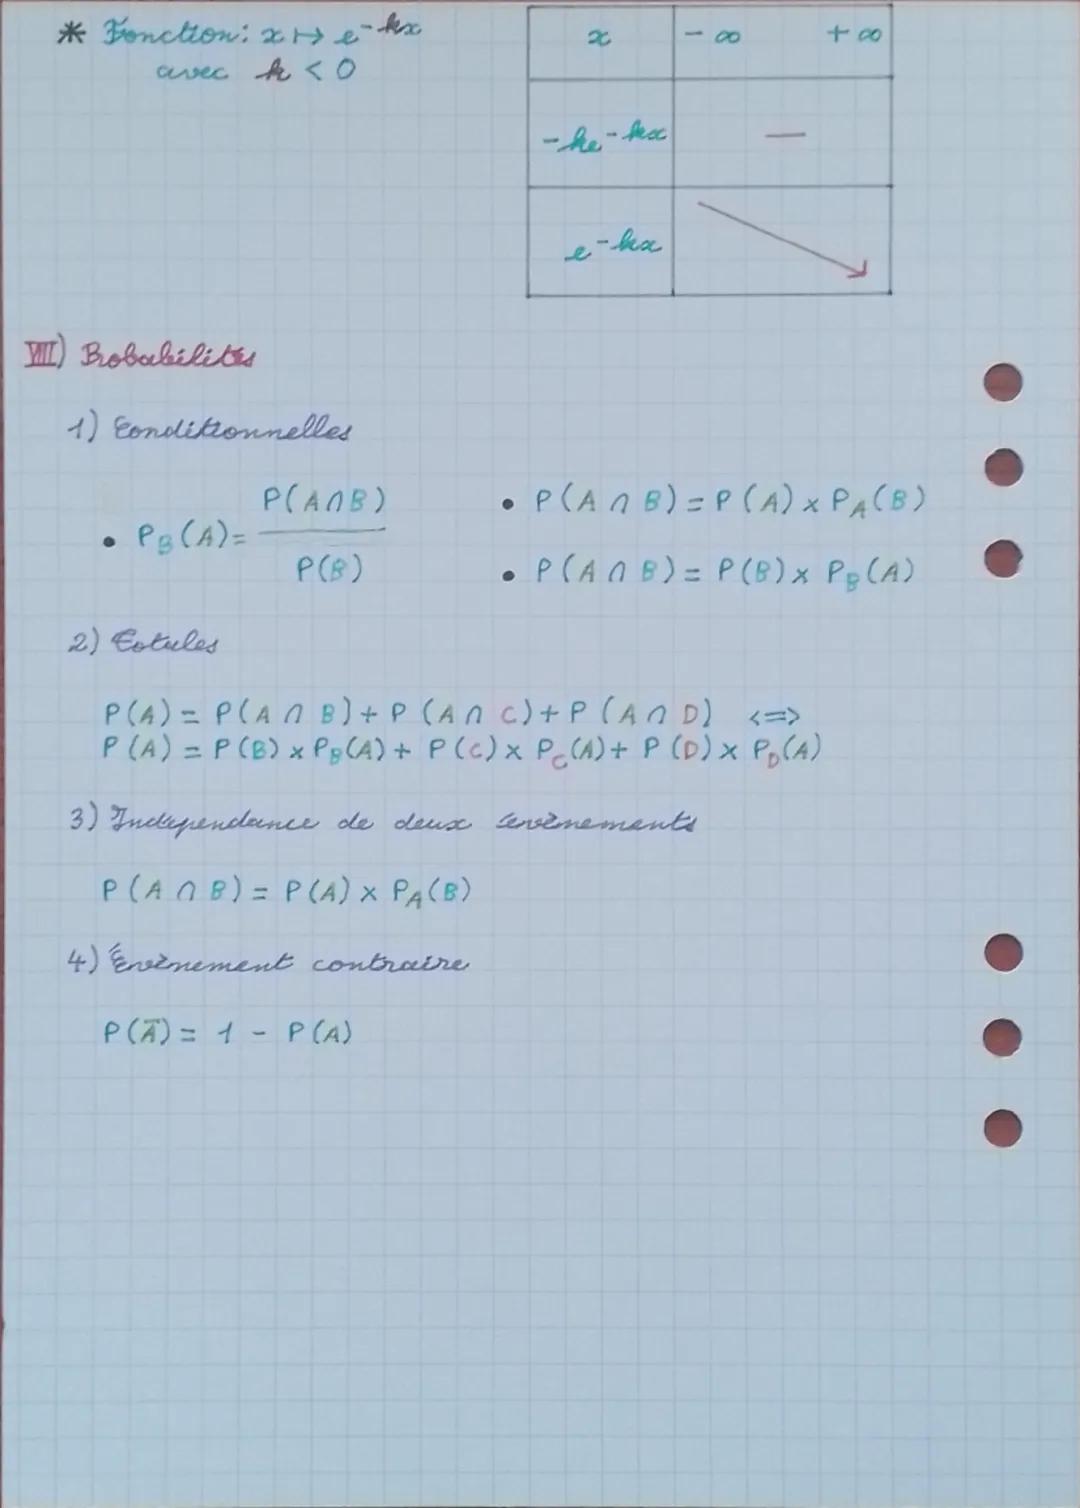 * Fonction: x ↦ e^-kx
avec k < 0
x - ∞ + ∞
-ke^-kx —
e^-kx
VIII) Probabilités
1) Conditionnelles
• P_B(A) = P(A∩B) / P(B)
• P(A ∩ B) = P(A) × P_A(B)
• P(A ∩ B) = P(B) × P_B(A)
2) Totales
P(A) = P(A ∩ B) + P(A ∩ C) + P(A ∩ D) <=>
P(A) = P(B) × P_B(A) + P(C) × P_C(A) + P(D) × P_D(A)
3) Indépendance de deux évènements
P(A ∩ B) = P(A) × P_A(B)
4) Évènement contraire
P(Ā) = 1 - P(A)